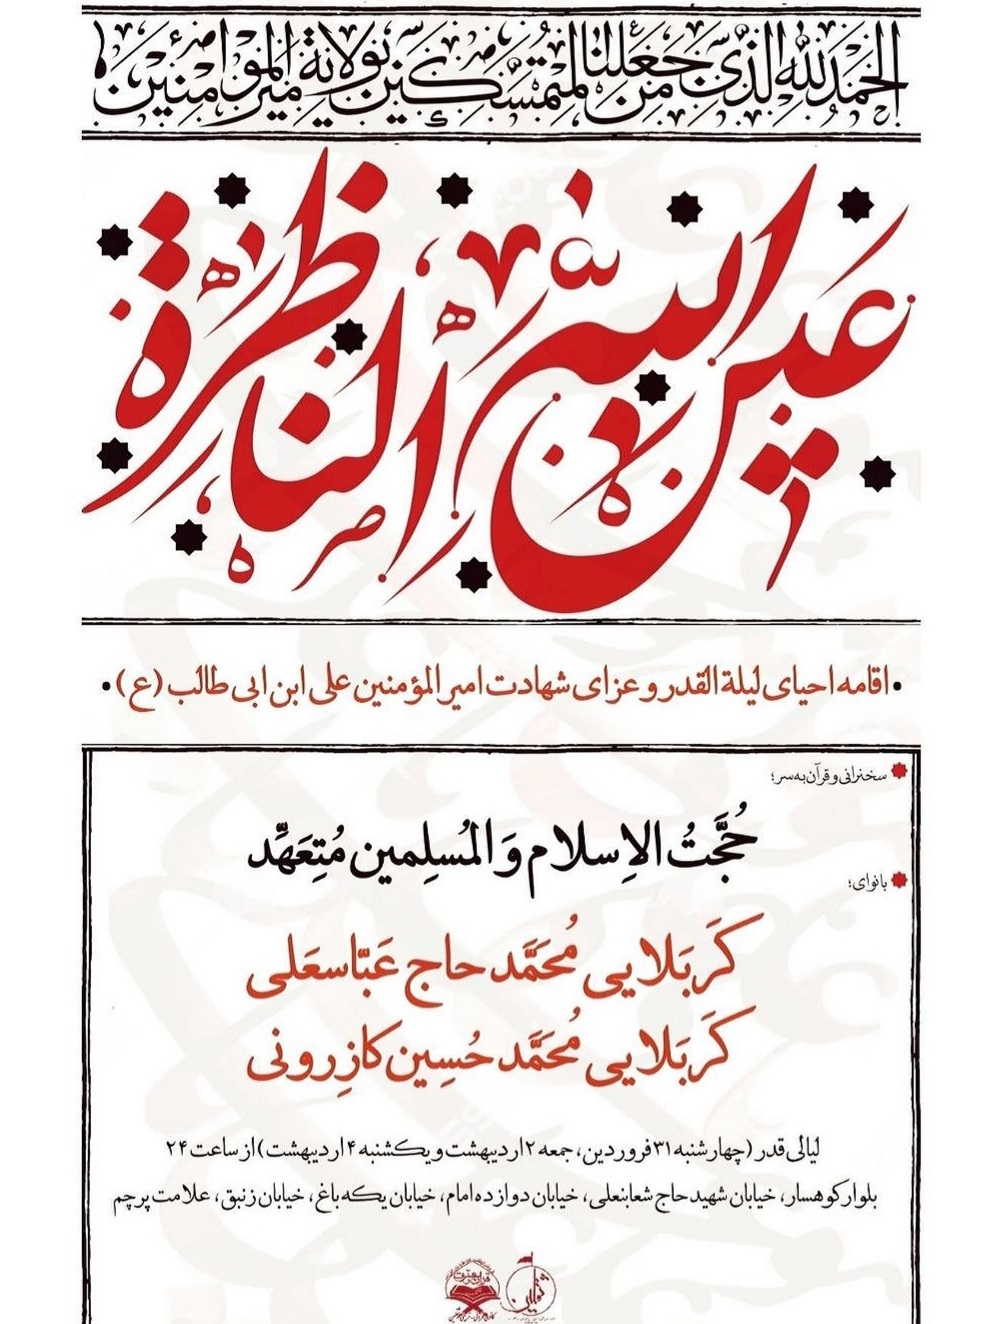 الحمدلله الذی جعلنا من المتمسکین بولایة امیرالمؤمنین
عین الله الناظرة
• اقامه احیای لیلة القدر و عزای شهادت امیرالمؤمنین علی ابن ابی طالب (ع) •
سخنرانی و قرآن به سر؛
حُجَّتُ الاِسلام وَ المُسلِمین مُتِعَهِّد
بانوای؛
کَربَلایی مُحَمَّد حاج عَبّاسعَلی
کَربَلایی مُحَمَّد حُسِین کازِرونی
لیالی قدر (چهارشنبه ۳۱ فروردین، جمعه ۲ اردیبهشت و یکشنبه ۴ اردیبهشت) از ساعت ۲۴
بلوار کوهسار، خیابان شهید حاج شعابنعلی، خیابان دوازده امام، خیابان یکه باغ، خیابان زنبق، علامت پرچم